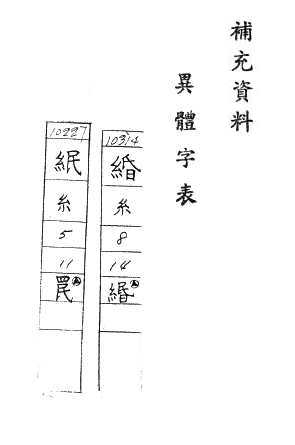 補充資料
異體字表
10314
緍
糸
8
14
緡
10227
紙
糸
5
11
罠